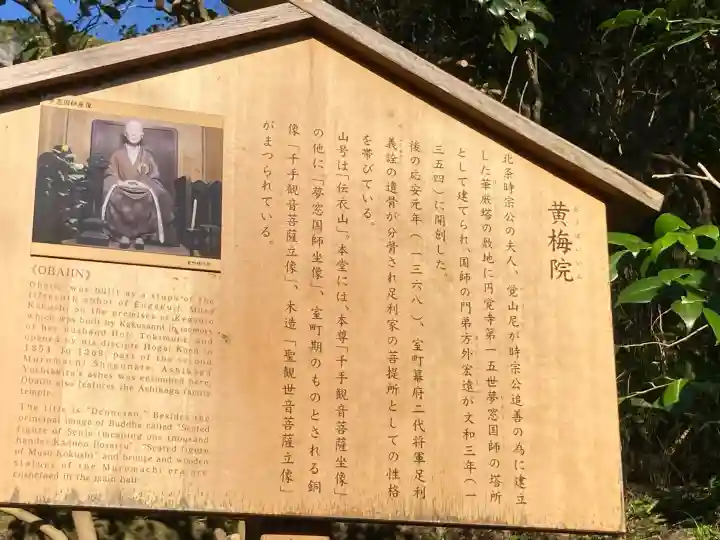 黄梅院
おうばいいん
北条時宗公の夫人、覚山尼が時宗公追善の為に建立
した華厳塔の敷地に円覚寺第一五世夢窓国師の塔所
として建てられ、国師の門弟方外宏遠が文和三年(一
三五四)に開創した。
後の応安元年(一三六八)、室町幕府二代将軍足利
義詮の遺骨が分骨され足利家の菩提所としての性格
を帯びている。
山号は「伝衣山」。本堂には、本尊「千手観音菩薩坐像」
の他に「夢窓国師坐像」、室町期のものとされる銅
像「千手観音菩薩立像」、木造「聖観世音菩薩立像」
がまつられている。
夢窓国師座像
《OBAIIN》
Obaiin was built as a stupa of the
fifteenth abbot of Engakuji, Muso
Kokushi on the premises of Kegonto
which was built by Kakusanni in memory
of her husband Hojo Tokimune and
opened by his disciple Hogai Koen in
1354. In 1368, part of the second
Muromachi Shogunate, Ashikaga
Yoshiakira's ashes was entombed here.
Obaiin also features the Ashikaga family
temple.
The title is "Dennezan." Besides the
principal image of Buddha called "Seated
figure of Senju (meaning one thousand
hands) Kannon Bosatsu", "Seated figure
of Muso Kokushi" and bronze and wooden
statues of the Muromachi era are
enshrined in the main hall.